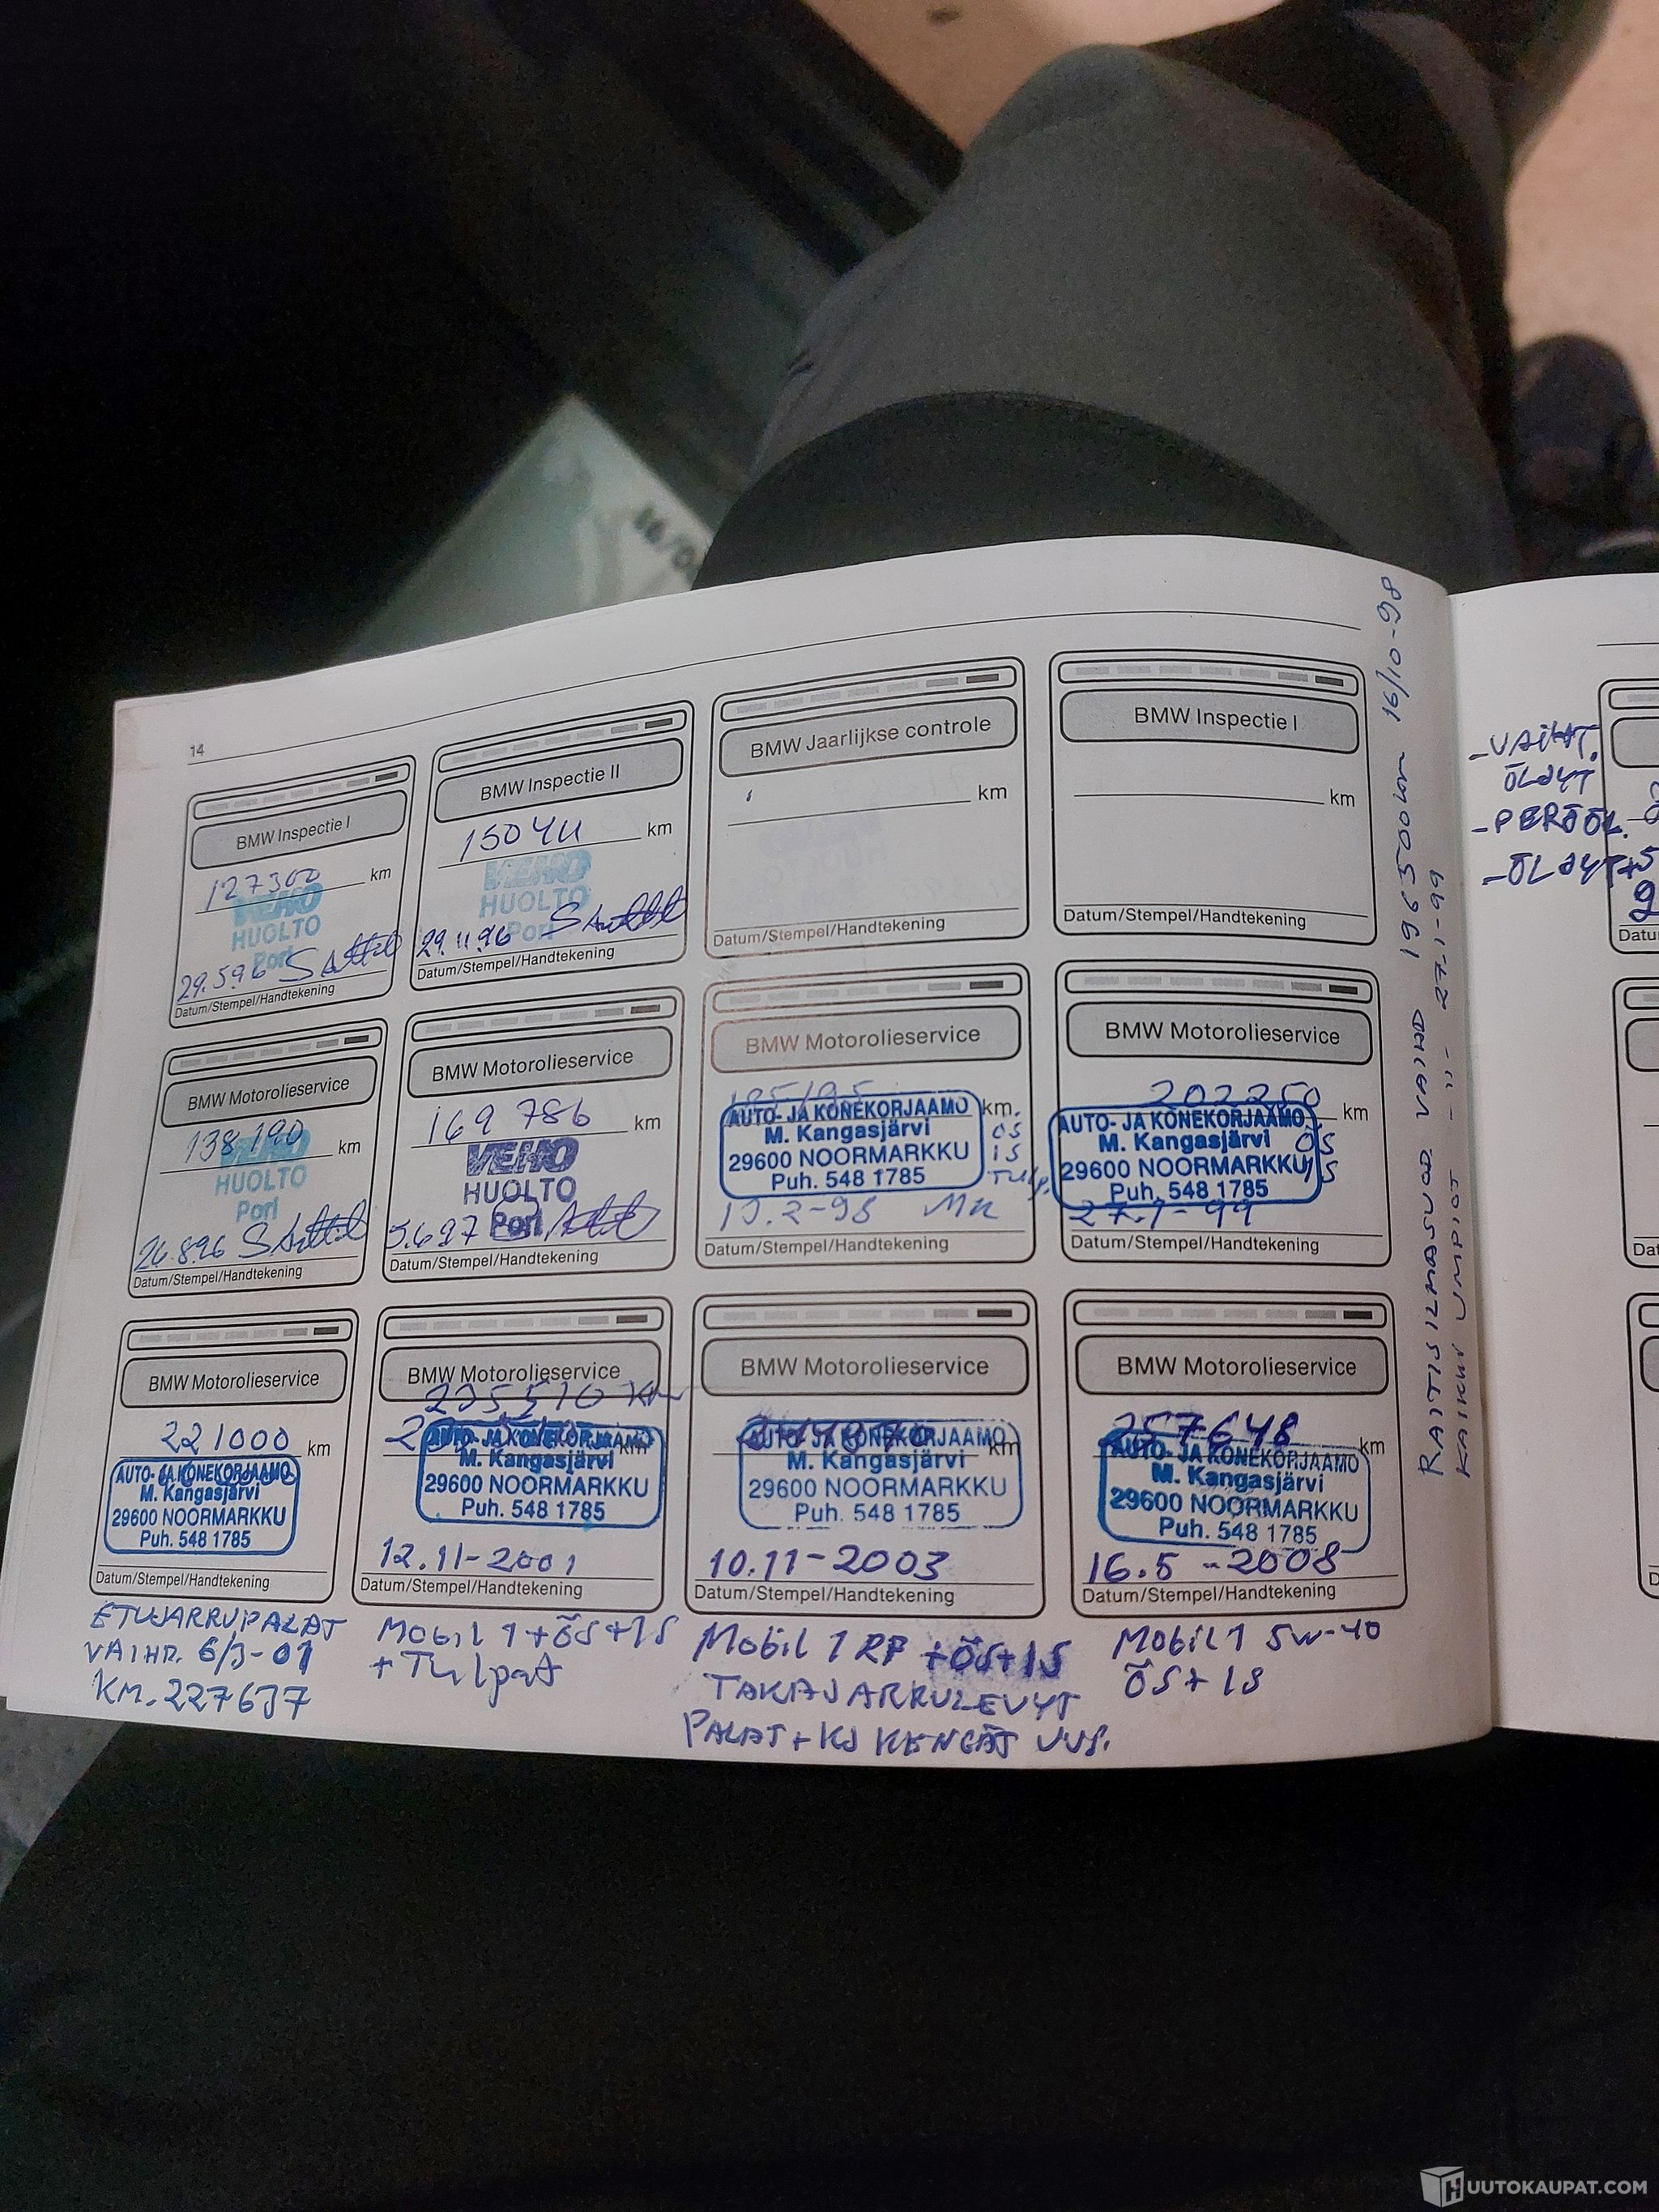 14
BMW Inspectie I
127300 km
VEHO
HUOLTO
Pori
29.5.96
Datum/Stempel/Handtekening
BMW Inspectie II
km
VEHO
HUOLTO
Pori
29.11.96
Datum/Stempel/Handtekening
BMW Jaarlijkse controle
km
Datum/Stempel/Handtekening
BMW Inspectie I
km
Datum/Stempel/Handtekening
BMW Motorolieservice
138190 km
VEHO
HUOLTO
Pori
26.8.96
Datum/Stempel/Handtekening
BMW Motorolieservice
169 786 km
VEHO
HUOLTO
Pori
5.6.97
Datum/Stempel/Handtekening
BMW Motorolieservice
km.
AUTO- JA KONEKORJAAMO
M. Kangasjärvi
29600 NOORMARKKU
Puh. 548 1785
ÖS
iS
Tulp.
Datum/Stempel/Handtekening
BMW Motorolieservice
202250 km
AUTO- JA KONEKORJAAMO
M. Kangasjärvi
29600 NOORMARKKU
Puh. 548 1785
ÖS
27.1-99
Datum/Stempel/Handtekening
BMW Motorolieservice
221000 km
AUTO- JA KONEKORJAAMO
M. Kangasjärvi
29600 NOORMARKKU
Puh. 548 1785
Datum/Stempel/Handtekening
ETUJARRUPALAT
VAIHD. 6/3-01
KM. 227637
BMW Motorolieservice
235510 KM
km
AUTO- JA KONEKORJAAMO
M. Kangasjärvi
29600 NOORMARKKU
Puh. 548 1785
12.11-2001
Datum/Stempel/Handtekening
MObil 1 + ÖS + IS
+ Tulpat
BMW Motorolieservice
km
AUTO- JA KONEKORJAAMO
M. Kangasjärvi
29600 NOORMARKKU
Puh. 548 1785
10.11-2003
Datum/Stempel/Handtekening
MObil 1 RP + ÖS + IS
TAKAJARRULEVYT
PALAT + KJ KENGÄT UUS.
BMW Motorolieservice
257648 km
AUTO- JA KONEKORJAAMO
M. Kangasjärvi
29600 NOORMARKKU
Puh. 548 1785
16.5 -2008
Datum/Stempel/Handtekening
MObil 1 5W-40
ÖS + IS
RAITISILMASUOD VAIHD 196500km 16/10-98
KAIKKI UMPIOT - " - 27-1-99
-VAIHT.
ÖLJYT
-PERÖÖL.
-ÖLJYT+S
Datu
Dat
D
16/0
HUUTOKAUPAT.COM